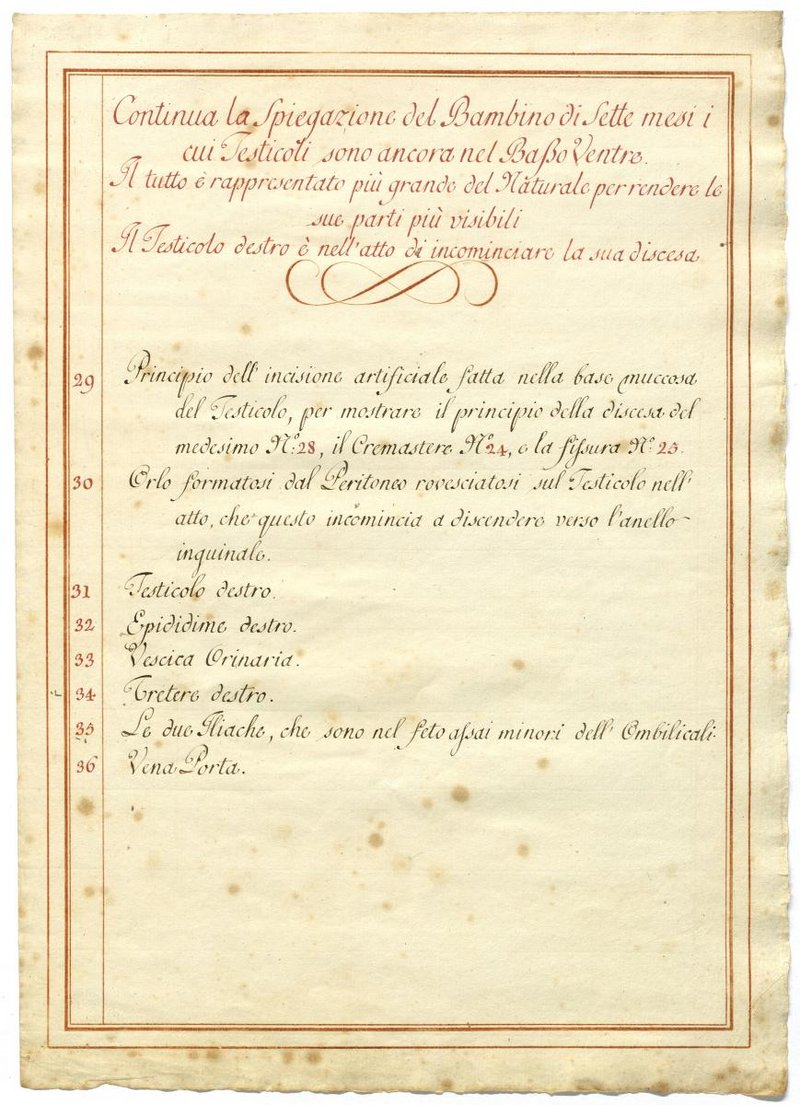 Continua la Spiegazione del Bambino di Sette mesi i
cui Testicoli sono ancora nel Baßo Ventre.
Il tutto è rappresentato più grande del Naturale per rendere le
sue parti più visibili
Il Testicolo destro è nell'atto di incominciare la sua discesa
29 Principio dell' incisione artificiale fatta nella base muccosa
del Testicolo, per mostrare il principio della discesa del
medesimo N.º 28, il Cremastere N.º 24, e la fissura N.º 25.
30 Orlo formatosi dal Peritoneo rovesciatosi sul Testicolo nell'
atto, che questo incomincia a discendere verso l'anello
inguinale.
31 Testicolo destro.
32 Epididime destro.
33 Vescica Orinaria.
34 Uretere destro.
35 Le due Iliache, che sono nel feto assai minori dell' Ombilicali.
36 Vena Porta.